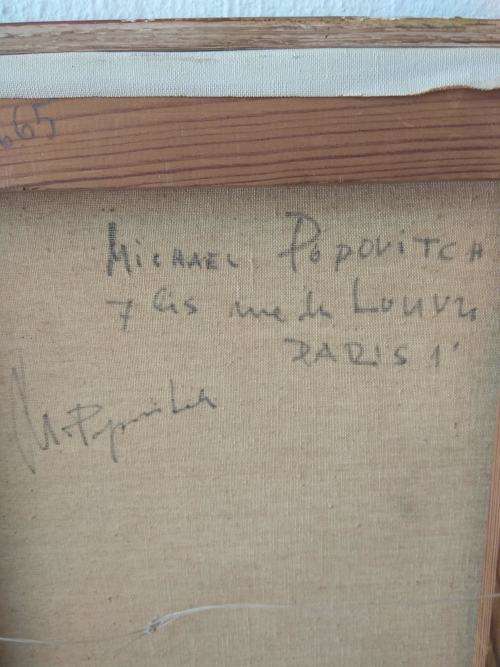 665
MICHAEL POPOVITCH
7 bis rue du LOUVRE
PARIS 1'
M. Popovitch